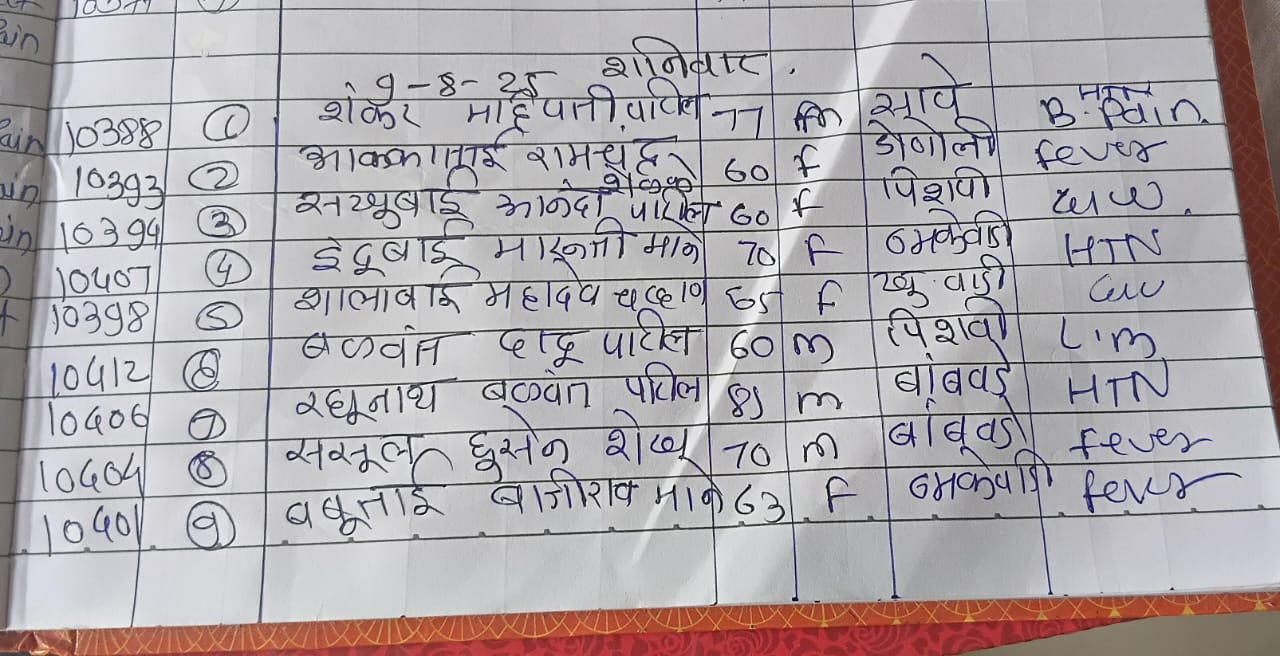 9-8-25 शनिवार.
10388 ① शंकर महिपाती पाटील 77 m सावे HTN B. Pain.
10393 ② आक्काताई रामचंद्र शेळके 60 f डोणोली fever
10394 ③ सखुबाई आनंदा पाटील 60 f पिशवी
10407 ④ इंदूबाई मारूती माने 70 F ठमकेवाडी HTN
10398 ⑤ शालाबाई महादेव चव्हाण 65 f खु. वाडी
10412 ⑥ बळवंत दादू पाटील 60 m पिशवी
10406 ⑦ रघूनाथ बळवंत पाटील 85 m बांबवडे HTN
10404 ⑧ हुसेन शेख 70 m बांबवडे fever
10401 ⑨ बबूताई बाजीराव माने 63 F ठमकेवाडी fever